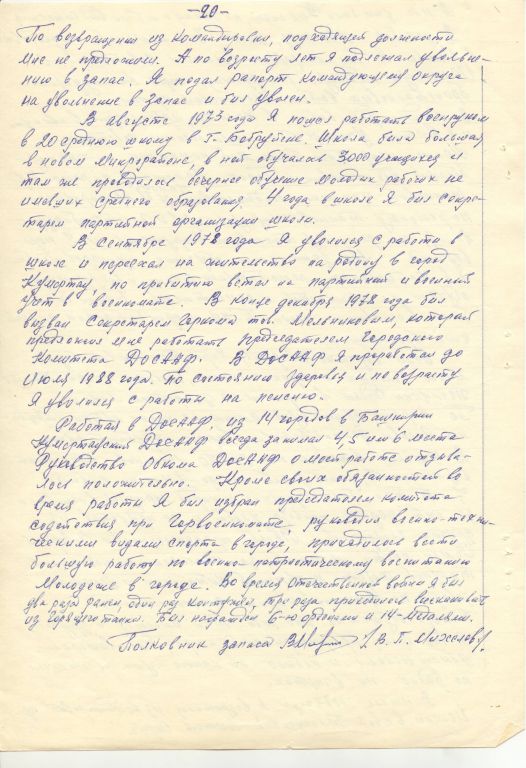 -20-
По возвращении из командировки, подходящей должности
мне не предложили. А по возрасту лет Я подлежал увольне-
нию в запас. Я подал рапорт Командующему округа
на увольнение в запас и был уволен.
В августе 1973 года Я пошел работать военруком
в 20 среднюю школу в г. Бобруйске. Школа была большая,
в новом микрорайоне, в ней обучалось 3000 учащихся и
там же проводилось вечернее обучение молодых рабочих не
имевших среднего образования. 4 года в школе Я был секре-
тарем партийной организации школы.
В Сентябре 1978 года Я уволился с работы в
школе и переехал на жительство на родину в город
Кумертау, по прибытию встал на партийный и военный
учет в военкомате. В конце декабря 1978 года был
вызван Секретарем Горкома тов. Мельниковым, который
предложил мне работать Председателем Городского
Комитета ДОСААФ. В ДОСААФ Я проработал до
Июля 1988 года. По состоянию здоровья и по возрасту
Я уволился с работы на пенсию.
Работая в ДОСААФ, из 14 городов в Башкирии
Кумертауский ДОСААФ всегда занимал 4,5 или 6 места
Руководство Обкома ДОСААФ о моей работе отзыва-
лось положительно. Кроме своих обязанностей во
время работы Я был избран председателем комитета
содействия при Горвоенкомате, руководил военно-техни-
ческими видами спорта в городе, приходилось вести
большую работу по военно-патриотическому воспитанию
Молодежи в городе. Во время Отечественной войны Я был
два раза ранен, один раз контужен, три раза приходилось выскакивать
из горящего танка. Был награжден 6-ю орденами и 14-медалями.
Полковник запаса (В. П.